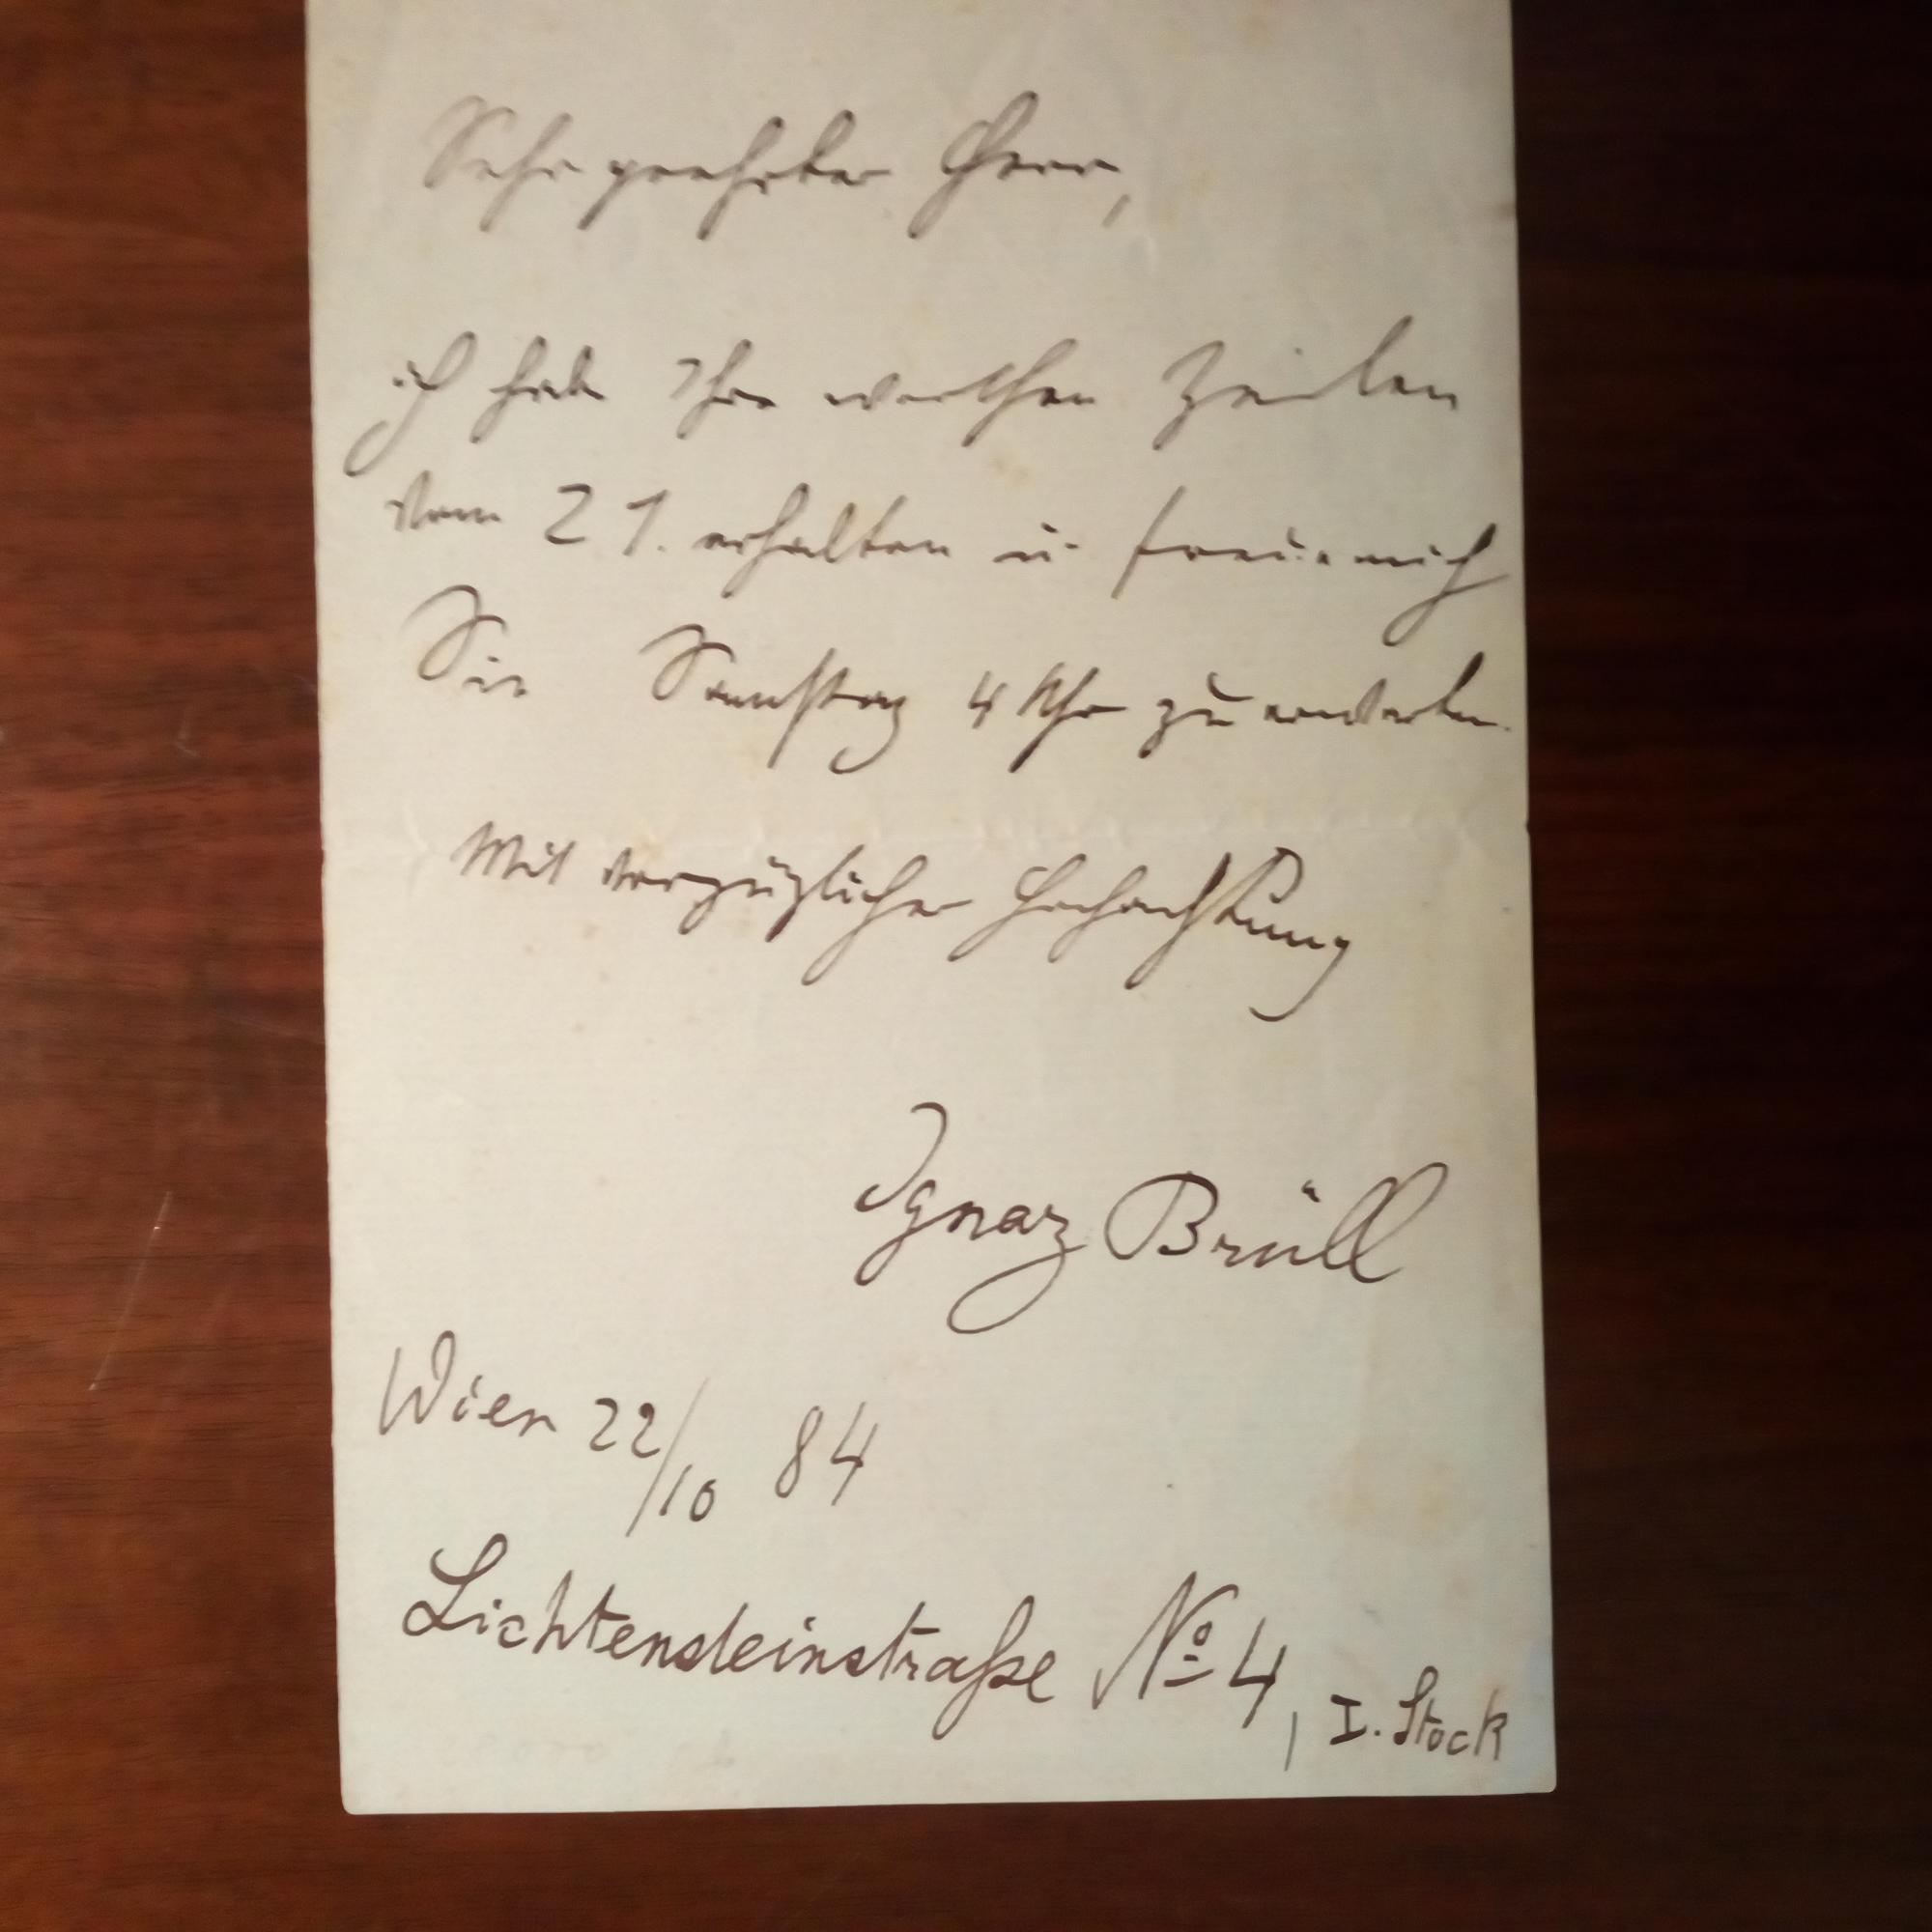 Sehr geehrter Herr,
ich habe Ihre werthen Zeilen
vom 21. erhalten u. freue mich
Sie Samstag 4 Uhr zu erwarten.
Mit vorzüglicher Hochachtung
Ignaz Brüll
Wien 22/10 84
Lichtensteinstraße No 4, I. Stock